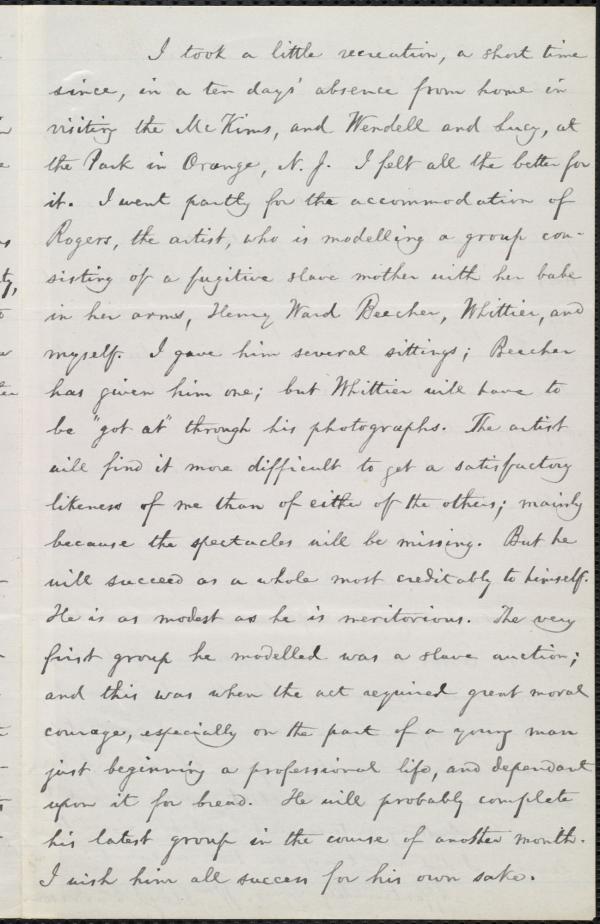 I took a little recreation, a short time
since, in a ten days' absence from home in
visiting the McKims, and Wendell and Lucy, at
the Park in Orange, N. J. I felt all the better for
it. I went partly for the accommodation of
Rogers, the artist, who is modelling a group con-
sisting of a fugitive slave mother with her babe
in her arms, Henry Ward Beecher, Whittier, and
myself. I gave him several sittings; Beecher
has given him one; but Whittier will have to
be "got at" through his photographs. The artist
will find it more difficult to get a satisfactory
likeness of me than of either of the others; mainly
because the spectacles will be missing. But he
will succeed as a whole most creditably to himself.
He is as modest as he is meritorious. The very
first group he modelled was a slave auction;
and this was when the act required great moral
courage, especially on the part of a young man
just beginning a professional life, and dependant
upon it for bread. He will probably complete
his latest group in the course of another month.
I wish him all success for his own sake.